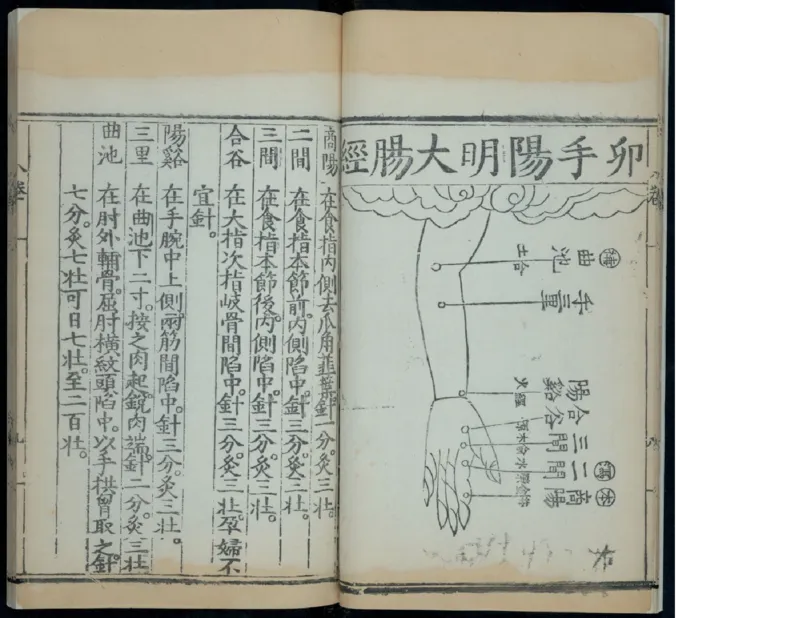 卯手陽明大腸經
補
曲池
土合
手三里
陽谿
火經
合谷
三間
二間
商陽
本
商陽 在食指內側去爪角韮葉針一分。灸三壯。
二間 在食指本節前。內側陷中。針三分。灸三壯。
三間 在食指本節後。內側陷中。針三分。灸三壯。
合谷 在大指次指岐骨間陷中。針三分。灸三壯。孕婦不
宜針。
陽谿 在手腕中上側兩筋間陷中。針三分。灸三壯。
三里 在曲池下二寸。按之肉起。銳肉端。針二分。灸三壯
曲池 在肘外輔骨。屈肘橫紋頭陷中。以手拱胷取之。針
七分。灸七壯。可日七壯。至二百壯。